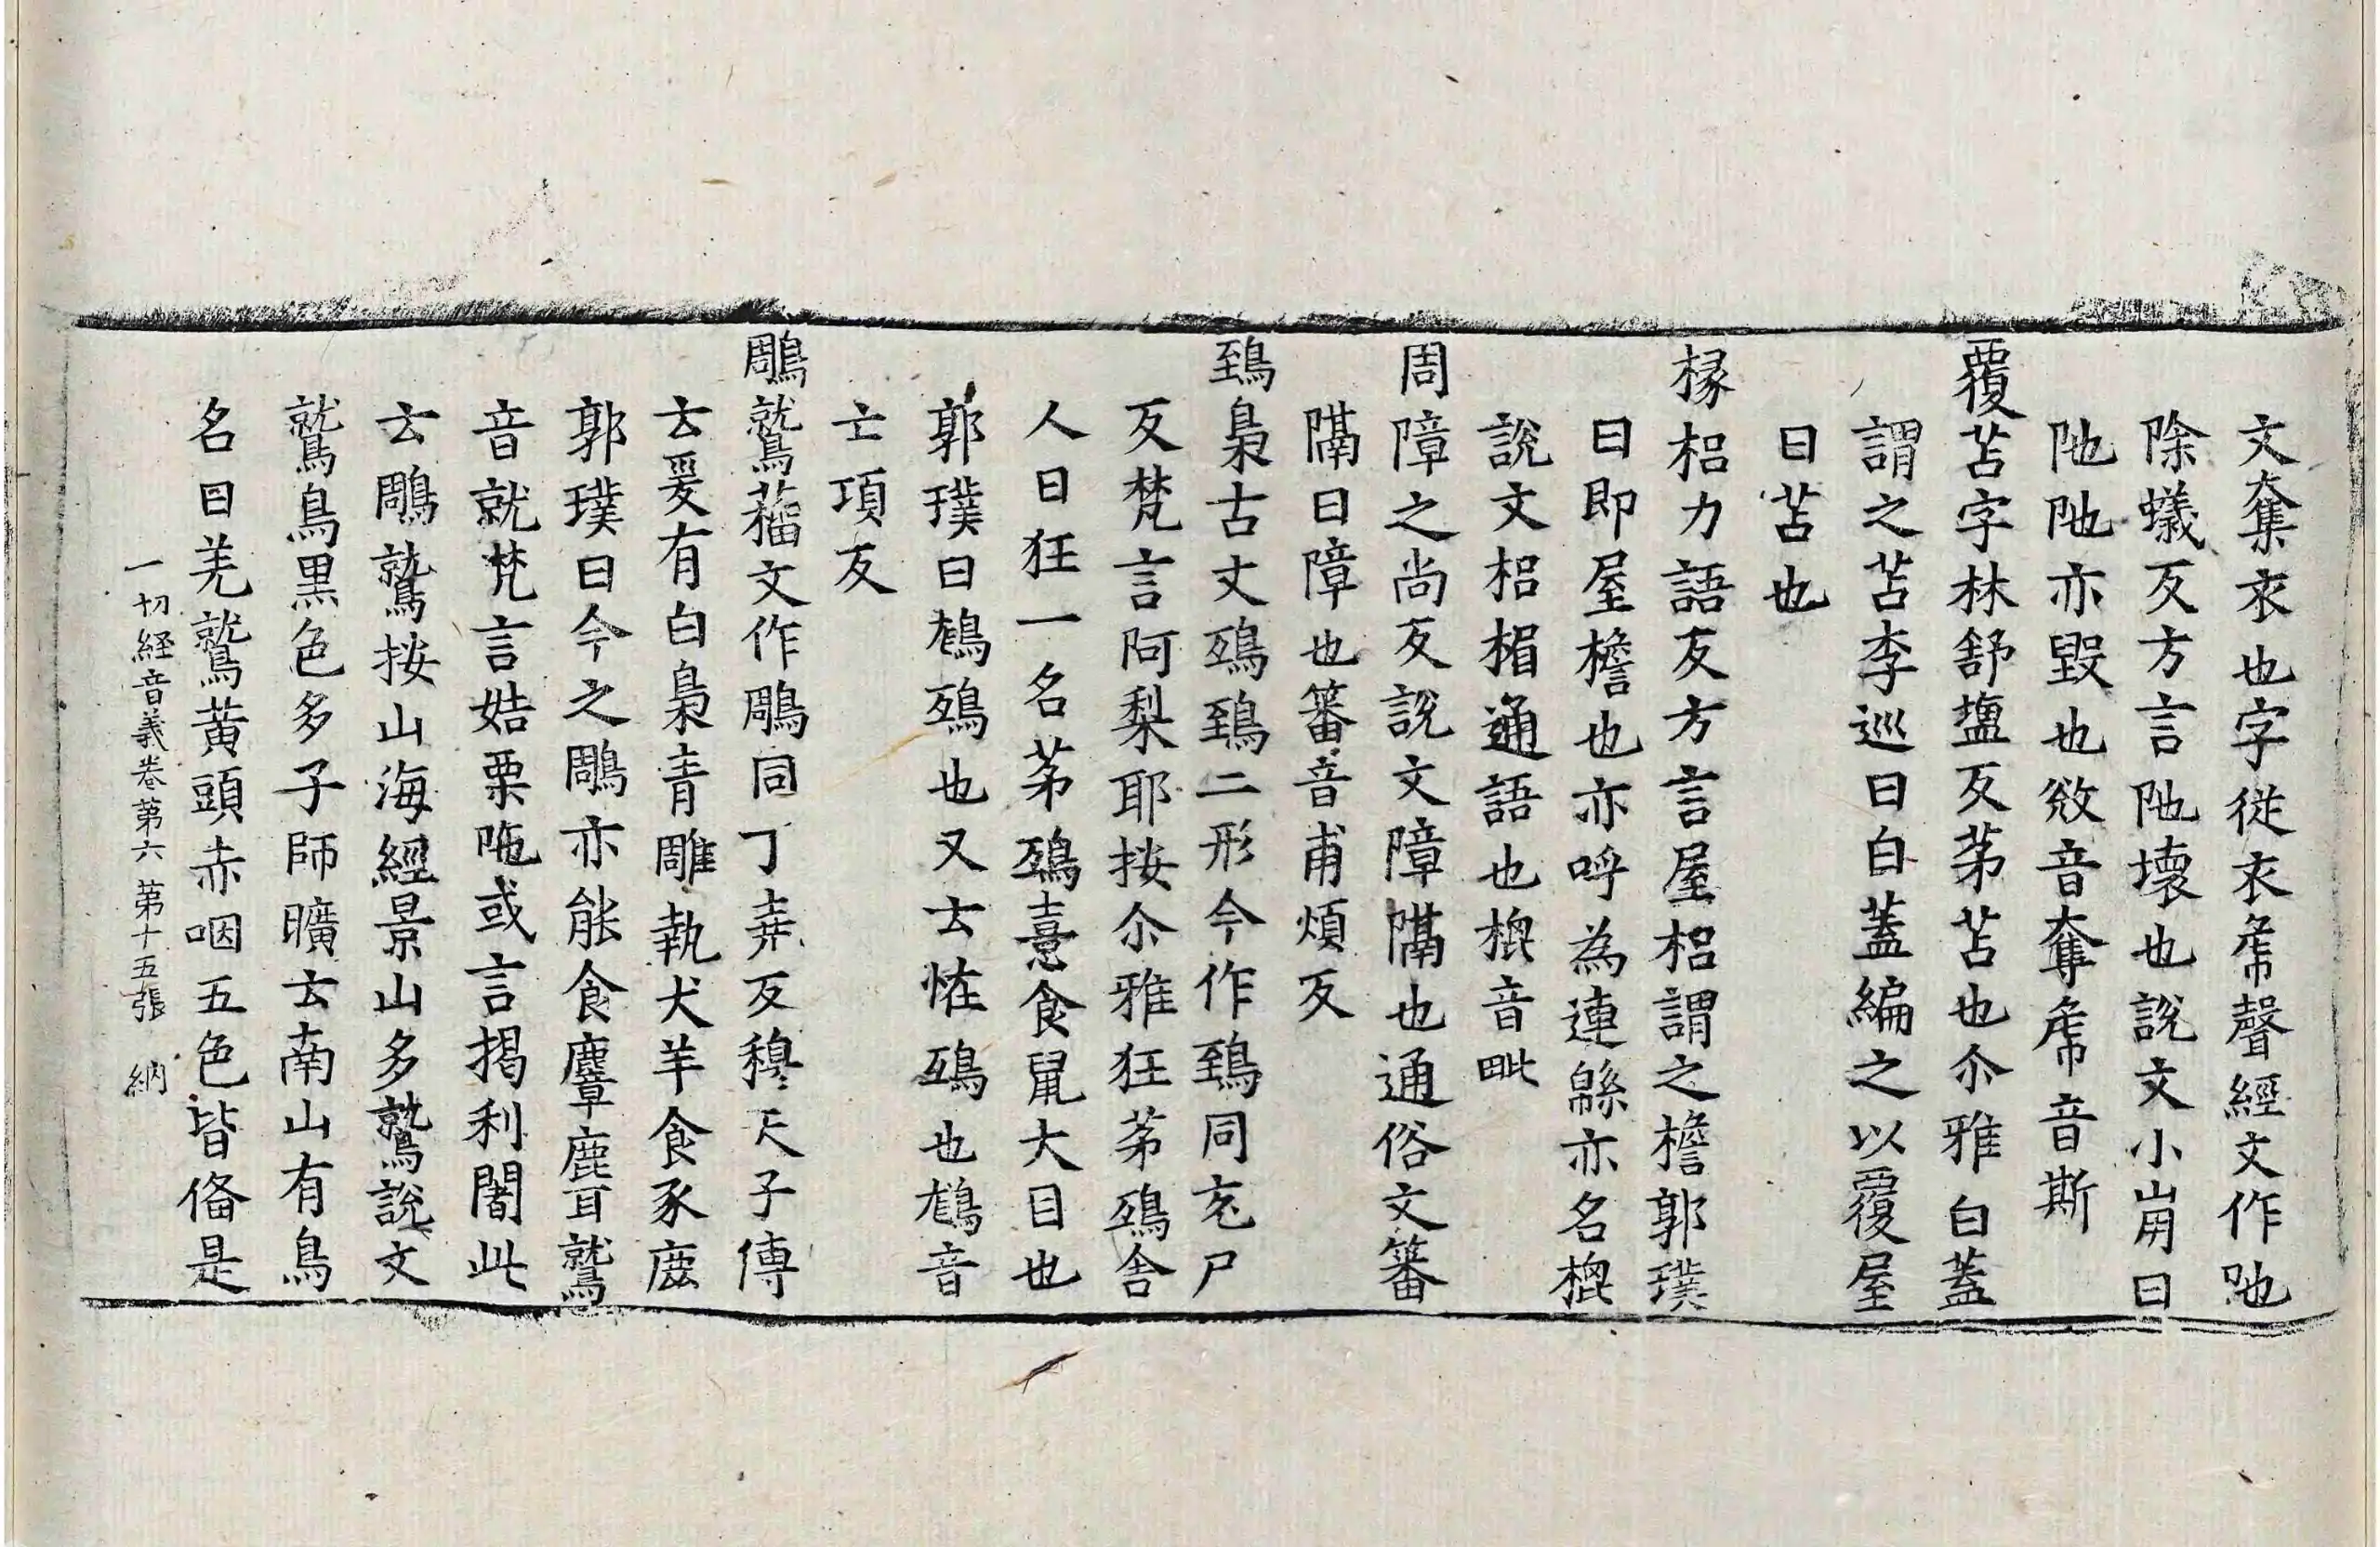 文奪衣也字從衣虒聲經文作吔
除蟻反方言阤壞也說文小崩曰
阤阤亦毀也敓音奪虒音斯
覆苫字林舒塩反茅苫也尒雅白蓋
謂之苫李巡曰白蓋編之以覆屋
曰苫也
椽梠力語反方言屋梠謂之檐郭璞
曰即屋檐也亦呼為連緜亦名槐
說文梠楣通語也槐音毗
周障之尚反說文障隔也通俗文蕃
隔曰障也蕃音甫煩反
鵄梟古文鵄鵄二形今作鵄同充尸
反梵言阿梨耶按尒雅狂茅鵄舍
人曰狂一名茅鵄憙食鼠大目也
郭璞曰鵵鵄也又云怪鵄也鵵音
亡項反
鵰鷲籀文作鵰同丁堯反穆天子傳
云爰有白梟青雕執犬羊食豕鹿
郭璞曰今之鵰亦能食麞鹿耳鷲
音就梵言姞栗陁或言揭利闍此
云鵰鷲按山海經景山多鷲說文
鷲鳥黑色多子師曠云南山有鳥
名曰羌鷲黃頭赤咽五色皆俻是
一切経音義卷第六 第十五張 納